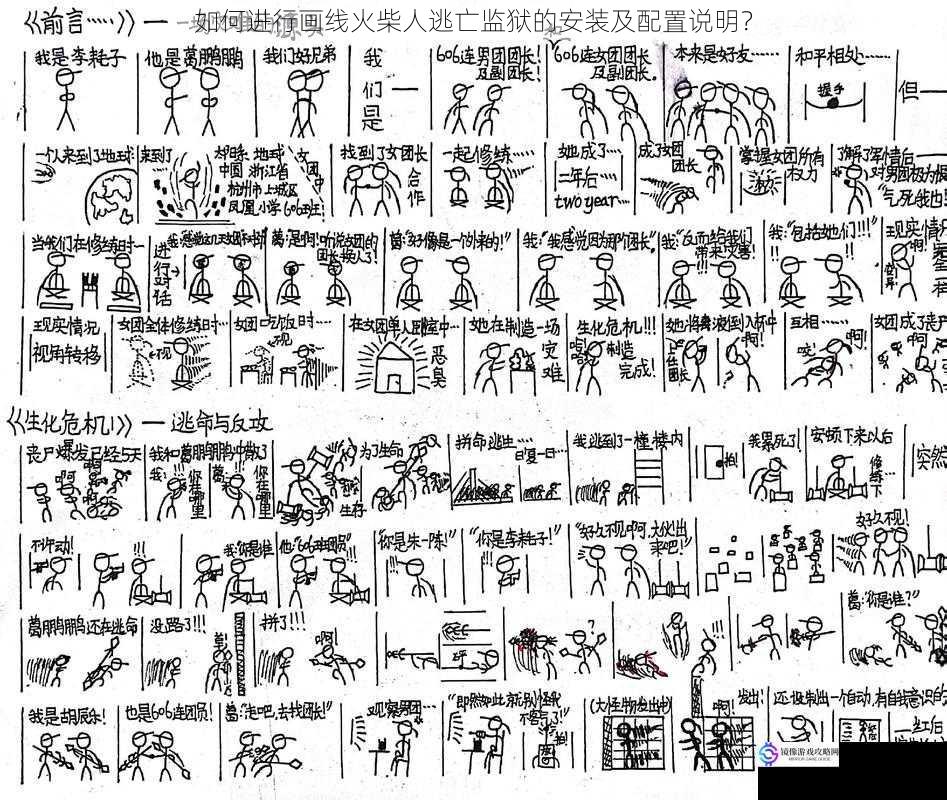 如何进行画线火柴人逃亡监狱的安装及配置说明？
《前言……》一
我是李耗子
他是葛鹏鹏
我们好兄弟
我们是一
606连男团团长！
及副团长！
和
606连女团团长
及副团长。
本来是好友……
和平相处……
握手
但一
一个人来到了地球
来到了
太阳系 地球
中国 浙江省
杭州市上城区
凤凰小学606班！
女团中
找到了女团长
合作
一起修练……
她成了…
二年后……
two year…
成了女团
团长
掌握女团所有
权力
了解了军情后一
对男团极为恨
当我们在修练时一
进行对话
葛："好像是一个外来的！"
我："我感觉因为那个团长。"
我："反而给我们
带来灾害！
我："包括她们！！！"
现实情况
现实情况
视角转移
女团全体修练时…
女团吃饭时……
在女团单人卧室中…
恶臭
她在制造一场
灾难
生化危机！！！
制造
完成！
啊！
互相……
咬
啊！
女团成了丧尸
《生化危机1》一 逃命与反攻
丧尸爆发已经5天
啊
我和葛鹏鹏鹏中散了
我：你在哪里
葛：你在哪里
为了生命
生存
拼命逃生……
日复一日…
我逃到了一幢楼内
我累死了
安顿下来以后
修练一下
突然
不许动！
！！！
我："你是谁
他："606班团员"
"你是朱一陈！"
"你是李耗子！"
"好久不见啊，大伙出
来吧！"
好久不见！
葛鹏鹏鹏还在逃命
没路了！！！
拼了！！！
啊！
？
！！！
葛："你是谁？"
我是胡辰乐！
也是606连团员！
葛："走吧，去找团长！"
观察男团…
"即然如此，就别怪我
不客气了！"
（大怪物发出中）
啊！
发出！
还没制出一个自动，有自我意识的
一红后
镜像游戏攻略网
MIRROR GAME GUIDE